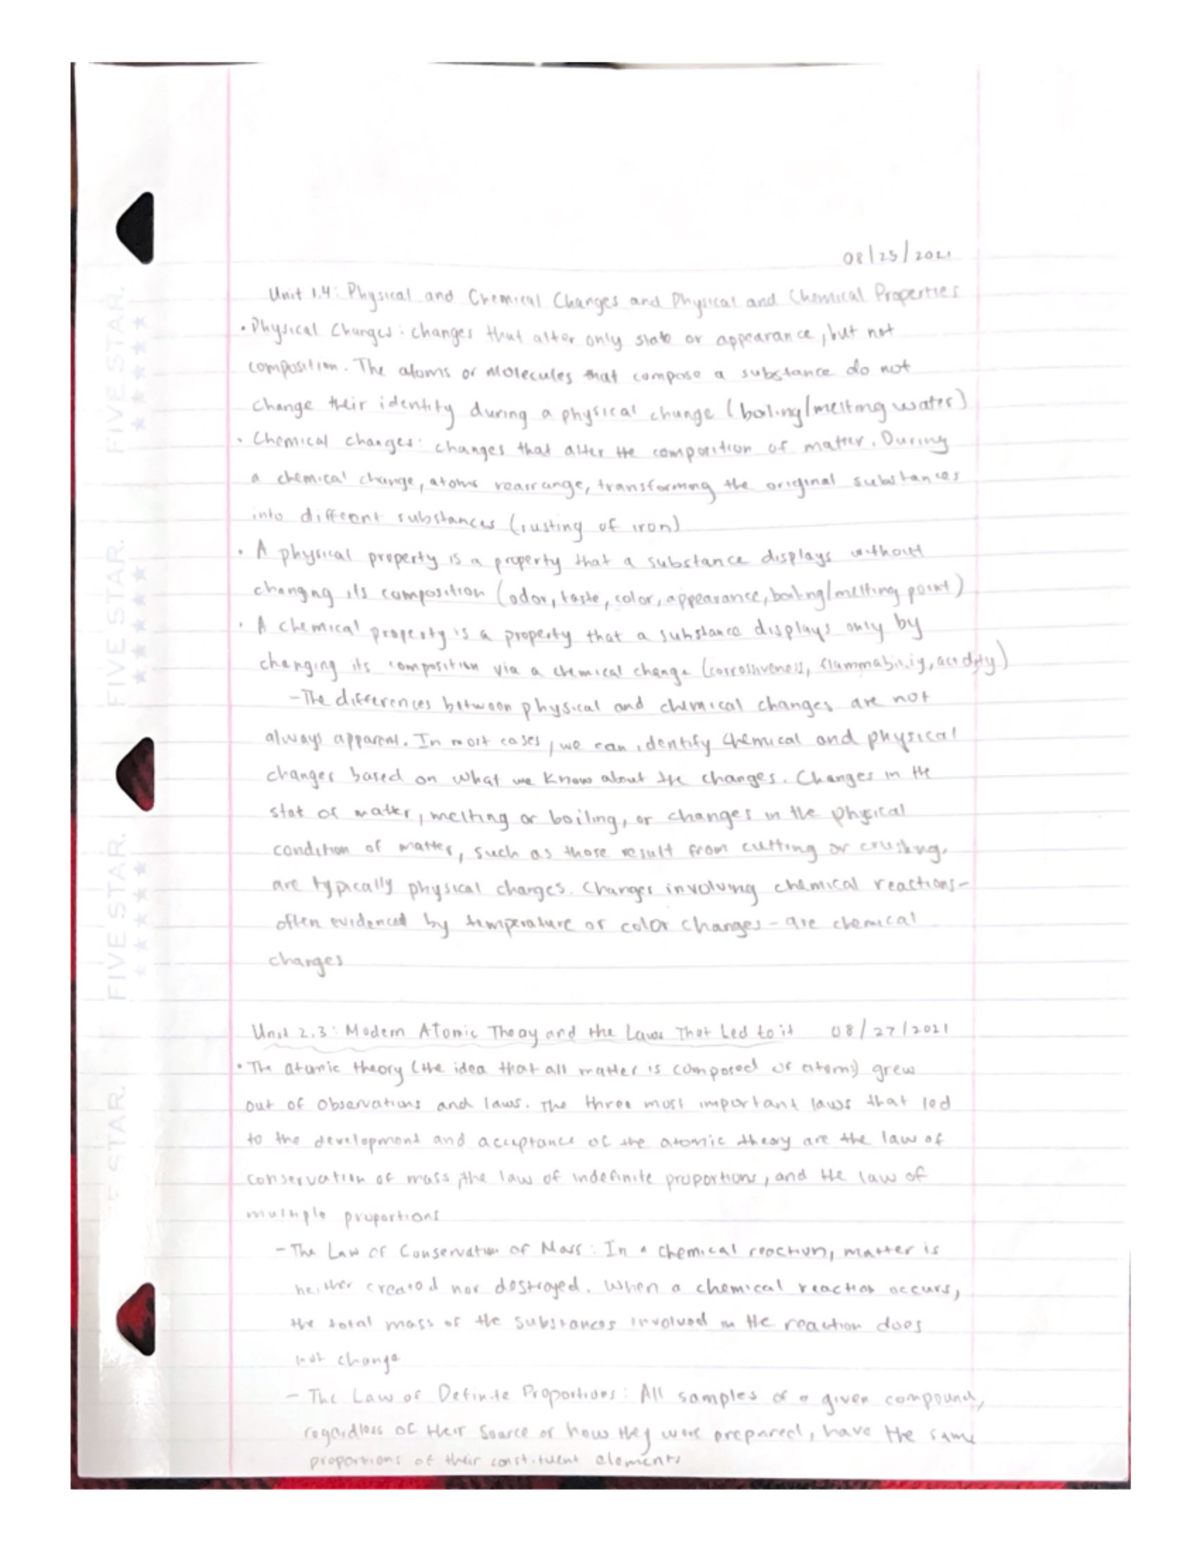 08/25/2021
Unit 1.4: Physical and Chemical Changes and Physical and Chemical Properties
• Physical Changes: changes that alter only state or appearance, but not
composition. The atoms or molecules that compose a substance do not
change their identity during a physical change (boiling/melting water)
• Chemical changes: changes that alter the composition of matter. During
a chemical change, atoms rearrange, transforming the original substances
into different substances (rusting of iron)
• A physical property is a property that a substance displays without
changing its composition (odor, taste, color, appearance, boiling/melting point)
• A chemical property is a property that a substance displays only by
changing its composition via a chemical change (corrosiveness, flammability, acidity)
-The differences between physical and chemical changes are not
always apparent. In most cases, we can identify chemical and physical
changes based on what we know about the changes. Changes in the
stat of matter, melting or boiling, or changes in the physical
condition of matter, such as those result from cutting or crushing,
are typically physical changes. Changes involving chemical reactions-
often evidenced by temperature or color changes - are chemical
changes
Unit 2.3: Modern Atomic Theory and the Laws That Led to it 08/27/2021
• The atomic theory (the idea that all matter is composed of atoms) grew
out of observations and laws. The three most important laws that led
to the development and acceptance of the atomic theory are the law of
conservation of mass, the law of indefinite proportions, and the law of
multiple proportions
- The Law of Conservation of Mass: In a chemical reaction, matter is
neither created nor destroyed. When a chemical reaction occurs,
the total mass of the substances involved in the reaction does
not change
- The Law of Definite Proportions: All samples of a given compound,
regardless of their source or how they were prepared, have the same
proportions of their constituent elements
FIVE STAR.
FIVE STAR.
FIVE STAR.
STAR.